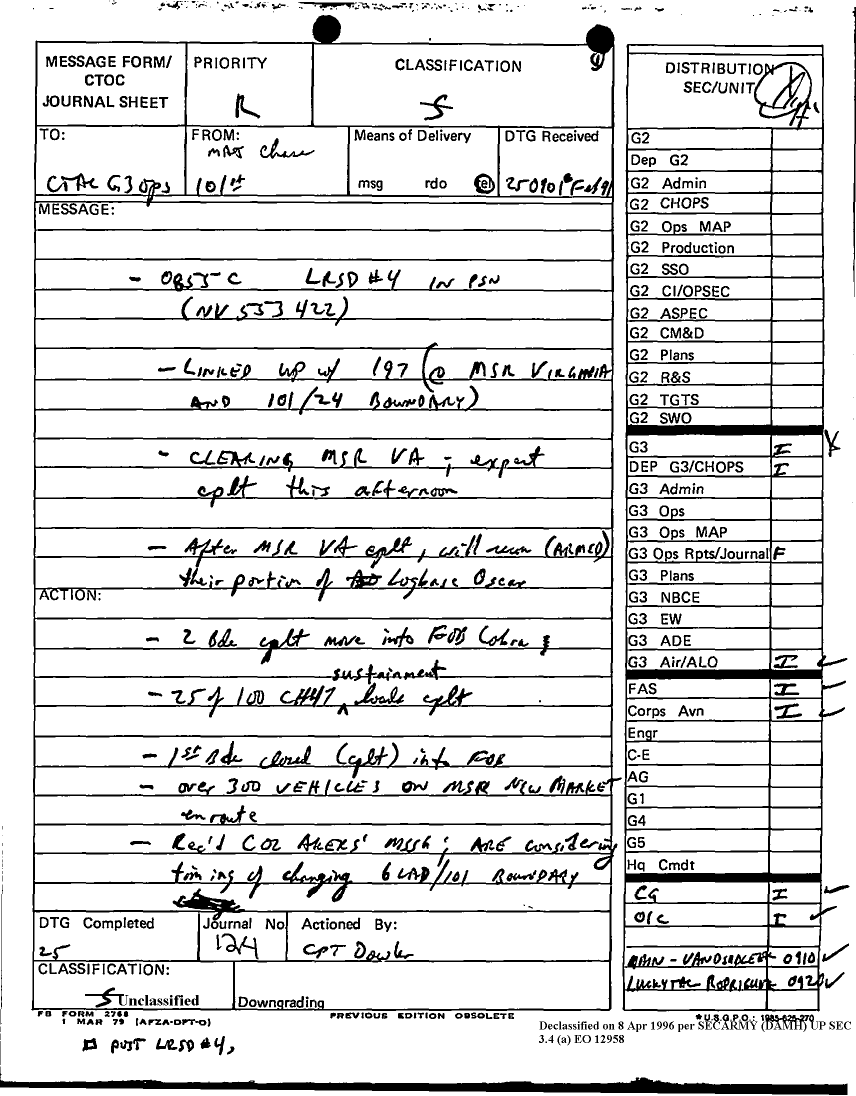 MESSAGE FORM/ CTOC JOURNAL SHEET
PRIORITY
R
CLASSIFICATION
S
TO:
CTAC G3 Ops
FROM:
MAJ Chase
101st
Means of Delivery
msg rdo tel
DTG Received
250901 Feb 91
MESSAGE:
- 0855 C LRSD #4 IN PSN
(NV 553 422)
- LINKED UP w/ 197 (@ MSR VIRGINIA
AND 101/24 BOUNDARY)
- CLEARING MSR VA - ; expect
cplt this afternoon
- After MSR VA cplt, will recon (ARMED)
their portion of Logbase Oscar
ACTION:
- 2 Bde cplt move into FOB Cobra ;
sustainment
- 25 of 100 CH47 ^ loads cplt
- 1st Bde closed (cplt) into FOB
- over 300 VEHICLES ON MSR NEW MARKET
enroute
- Rec'd COL AKERS' MSSG ; ARE considering
timing of changing 6 LAD/101 BOUNDARY
DTG Completed
25
Journal No
124
Actioned By:
CPT Dowler
CLASSIFICATION:
S Unclassified
Downgrading
FB FORM 2768
1 MAR 79 (AFZA-DPT-O)
PREVIOUS EDITION OBSOLETE
* U.S.G.P.O.: 1985-625-270
POST LRSD #4,
Declassified on 8 Apr 1996 per SECARMY (DAMH) UP SEC
3.4 (a) EO 12958
DISTRIBUTION
SEC/UNIT
G2
Dep G2
G2 Admin
G2 CHOPS
G2 Ops MAP
G2 Production
G2 SSO
G2 CI/OPSEC
G2 ASPEC
G2 CM&D
G2 Plans
G2 R&S
G2 TGTS
G2 SWO
G3 I
DEP G3/CHOPS I
G3 Admin
G3 Ops
G3 Ops MAP
G3 Ops Rpts/Journal F
G3 Plans
G3 NBCE
G3 EW
G3 ADE
G3 Air/ALO I
FAS I
Corps Avn I
Engr
C-E
AG
G1
G4
G5
Hq Cmdt
CG I
O/C I
MAIN - 0910
LUCKYTAC RODRIGUEZ 0920